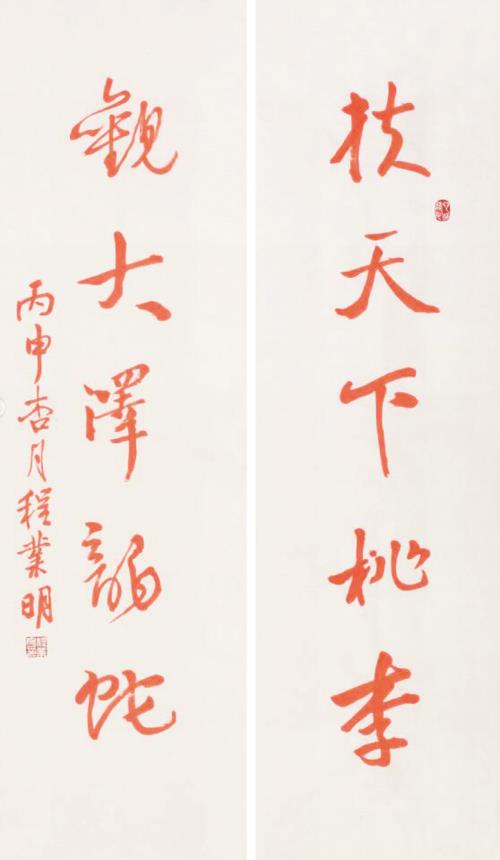 扶天下桃李
觀大澤龍蛇
丙申杏月程業明